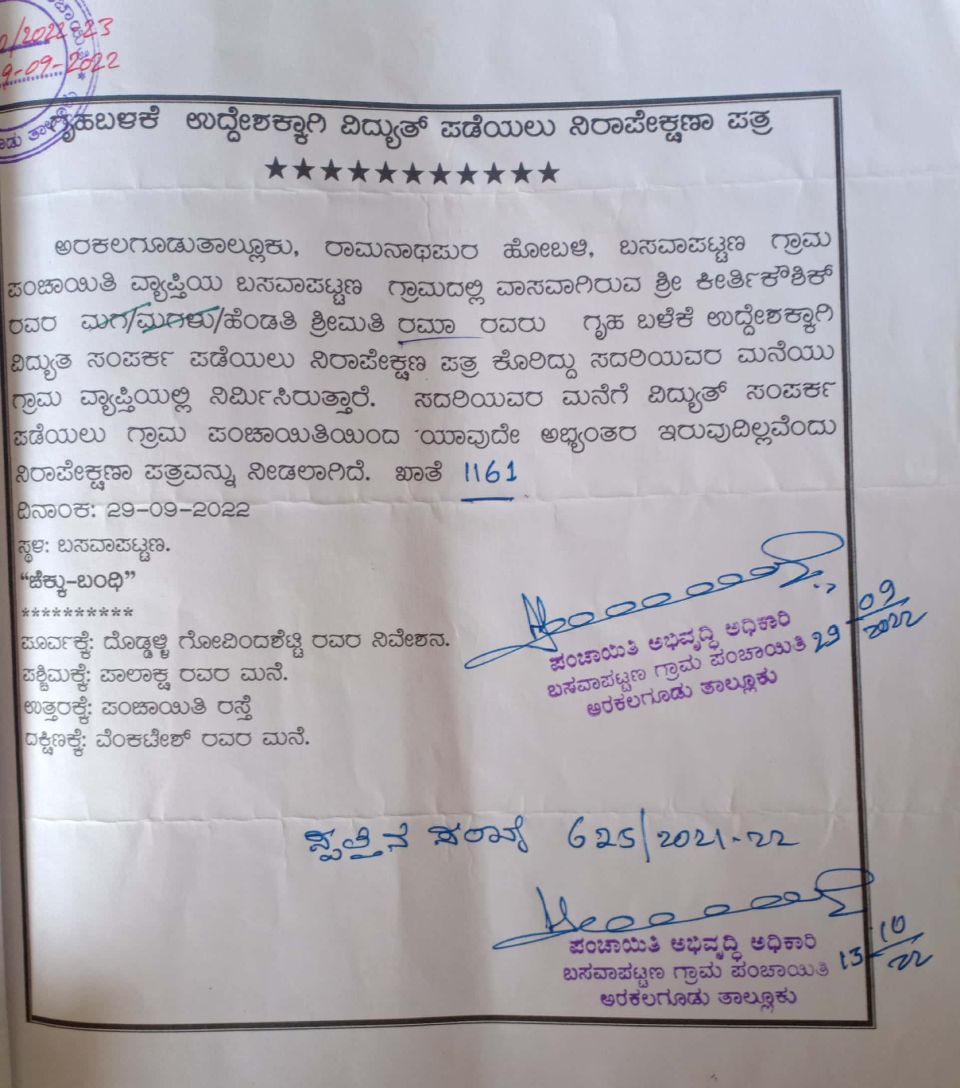 /2022-23
9-09-2022
ಗೃಹಬಳಕೆ ಉದ್ದೇಶಕ್ಕಾಗಿ ವಿದ್ಯುತ್ ಪಡೆಯಲು ನಿರಾಪೇಕ್ಷಣಾ ಪತ್ರ
★★★★★★★★★★★
ಅರಕಲಗೂಡುತಾಲ್ಲೂಕು, ರಾಮನಾಥಪುರ ಹೋಬಳಿ, ಬಸವಾಪಟ್ಟಣ ಗ್ರಾಮ
ಪಂಚಾಯಿತಿ ವ್ಯಾಪ್ತಿಯ ಬಸವಾಪಟ್ಟಣ ಗ್ರಾಮದಲ್ಲಿ ವಾಸವಾಗಿರುವ ಶ್ರೀ ಕೀರ್ತಿಕೌಶಿಕ್
ರವರ ಮಗ/ಮಗಳು/ಹೆಂಡತಿ ಶ್ರೀಮತಿ ರಮಾ ರವರು ಗೃಹ ಬಳೆಕೆ ಉದ್ದೇಶಕ್ಕಾಗಿ
ವಿದ್ಯುತ ಸಂಪರ್ಕ ಪಡೆಯಲು ನಿರಾಪೇಕ್ಷಣ ಪತ್ರ ಕೊರಿದ್ದು ಸದರಿಯವರ ಮನೆಯು
ಗ್ರಾಮ ವ್ಯಾಪ್ತಿಯಲ್ಲಿ ನಿರ್ಮಿಸಿರುತ್ತಾರೆ. ಸದರಿಯವರ ಮನೆಗೆ ವಿದ್ಯುತ್ ಸಂಪರ್ಕ
ಪಡೆಯಲು ಗ್ರಾಮ ಪಂಚಾಯಿತಿಯಿಂದ ಯಾವುದೇ ಅಭ್ಯಂತರ ಇರುವುದಿಲ್ಲವೆಂದು
ನಿರಾಪೇಕ್ಷಣಾ ಪತ್ರವನ್ನು ನೀಡಲಾಗಿದೆ. ಖಾತೆ 1161
ದಿನಾಂಕ: 29-09-2022
ಸ್ಥಳ: ಬಸವಾಪಟ್ಟಣ.
“ಚೆಕ್ಕು-ಬಂಧಿ”
**********
ಪೂರ್ವಕ್ಕೆ: ದೊಡ್ಡಳ್ಳಿ ಗೋವಿಂದಶೆಟ್ಟಿ ರವರ ನಿವೇಶನ.
ಪಶ್ಚಿಮಕ್ಕೆ: ಪಾಲಾಕ್ಷ ರವರ ಮನೆ.
ಉತ್ತರಕ್ಕೆ: ಪಂಚಾಯಿತಿ ರಸ್ತೆ
ದಕ್ಷಿಣಕ್ಕೆ: ವೆಂಕಟೇಶ್ ರವರ ಮನೆ.
ಪಂಚಾಯಿತಿ ಅಭಿವೃದ್ಧಿ ಅಧಿಕಾರಿ
ಬಸವಾಪಟ್ಟಣ ಗ್ರಾಮ ಪಂಚಾಯಿತಿ 29/09/2022
ಅರಕಲಗೂಡು ತಾಲ್ಲೂಕು
ಸ್ವತ್ತಿನ ಸಂಖ್ಯೆ 625/2021-22
ಪಂಚಾಯಿತಿ ಅಭಿವೃದ್ಧಿ ಅಧಿಕಾರಿ
ಬಸವಾಪಟ್ಟಣ ಗ್ರಾಮ ಪಂಚಾಯಿತಿ 13/10/22
ಅರಕಲಗೂಡು ತಾಲ್ಲೂಕು